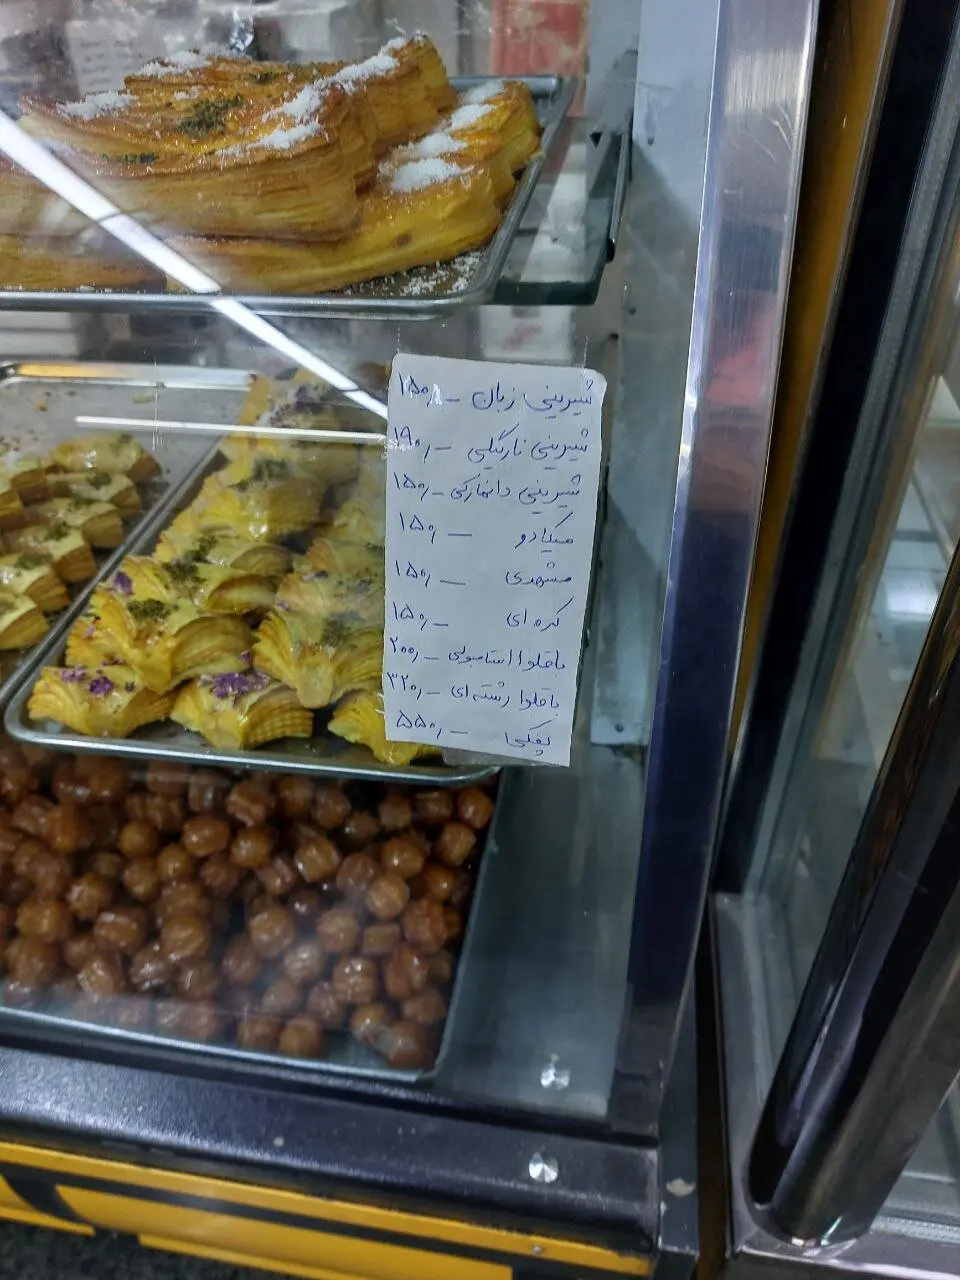 شیرینی زبان – ۱۵۰٫
شیرینی نارگیلی – ۱۹۰٫
شیرینی دانمارکی – ۱۵۰٫
میکادو – ۱۵۰٫
مشهدی – ۱۵۰٫
کره ای – ۱۵۰٫
باقلوا استامبولی – ۲۰۰٫
باقلوا رشته ای – ۳۲۰٫
پفکی – ۵۵۰٫